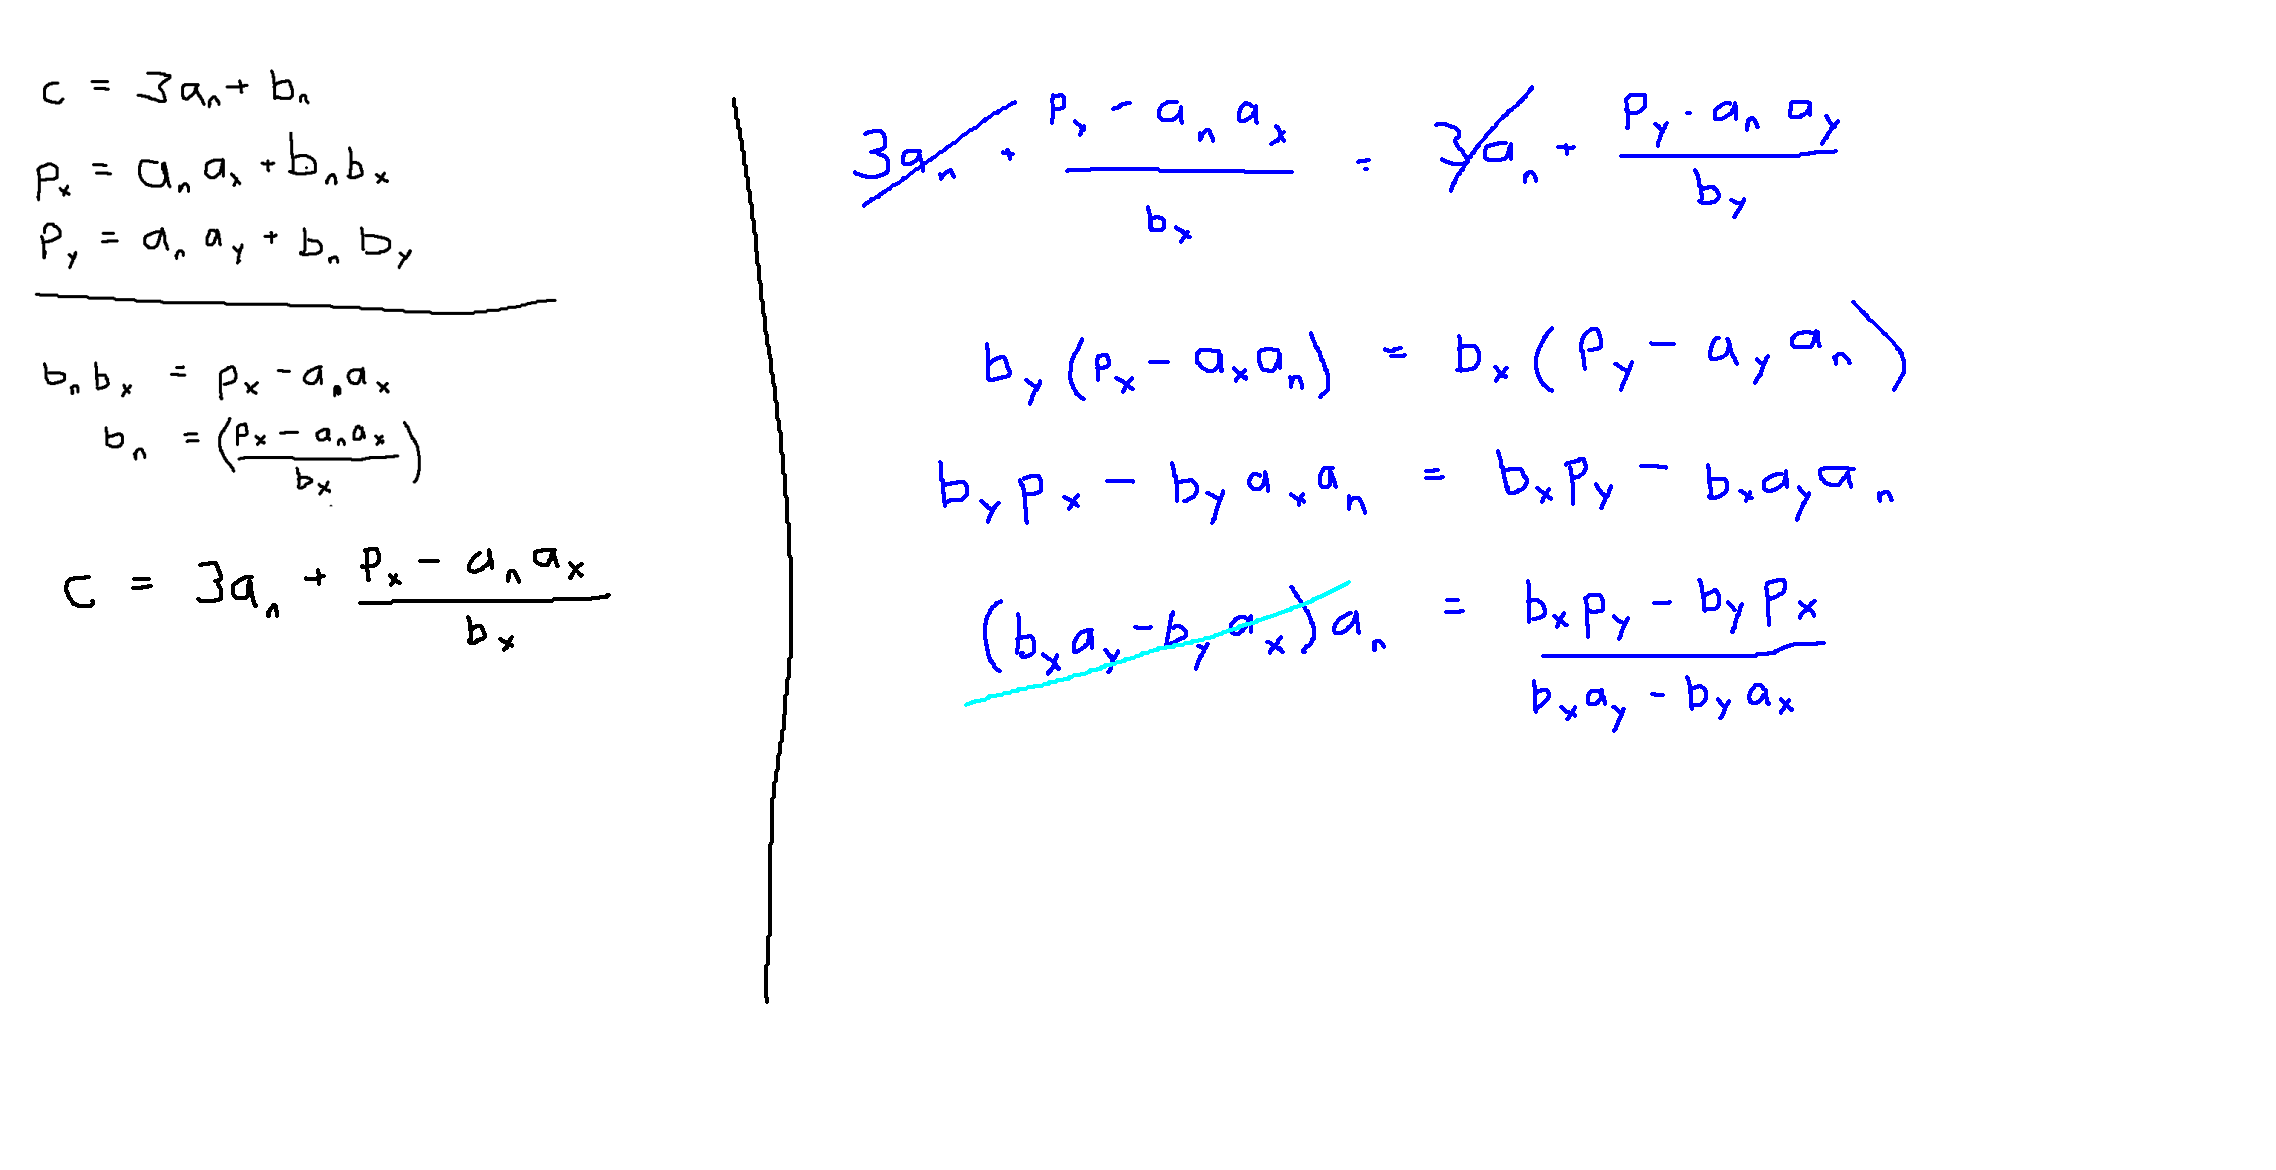 c = 3aₙ + bₙ
pₓ = aₙ aₓ + bₙ bₓ
p_y = aₙ a_y + bₙ b_y
bₙ bₓ = pₓ - aₙ aₓ
bₙ = ((pₓ - aₙ aₓ) / bₓ)
c = 3aₙ + (pₓ - aₙ aₓ) / bₓ
3aₙ + (pₓ - aₙ aₓ) / bₓ = 3aₙ + (p_y - aₙ a_y) / b_y
b_y (pₓ - aₓ aₙ) = bₓ (p_y - a_y aₙ)
b_y pₓ - b_y aₓ aₙ = bₓ p_y - bₓ a_y aₙ
(bₓ a_y - b_y aₓ) aₙ = (bₓ p_y - b_y pₓ) / (bₓ a_y - b_y aₓ)